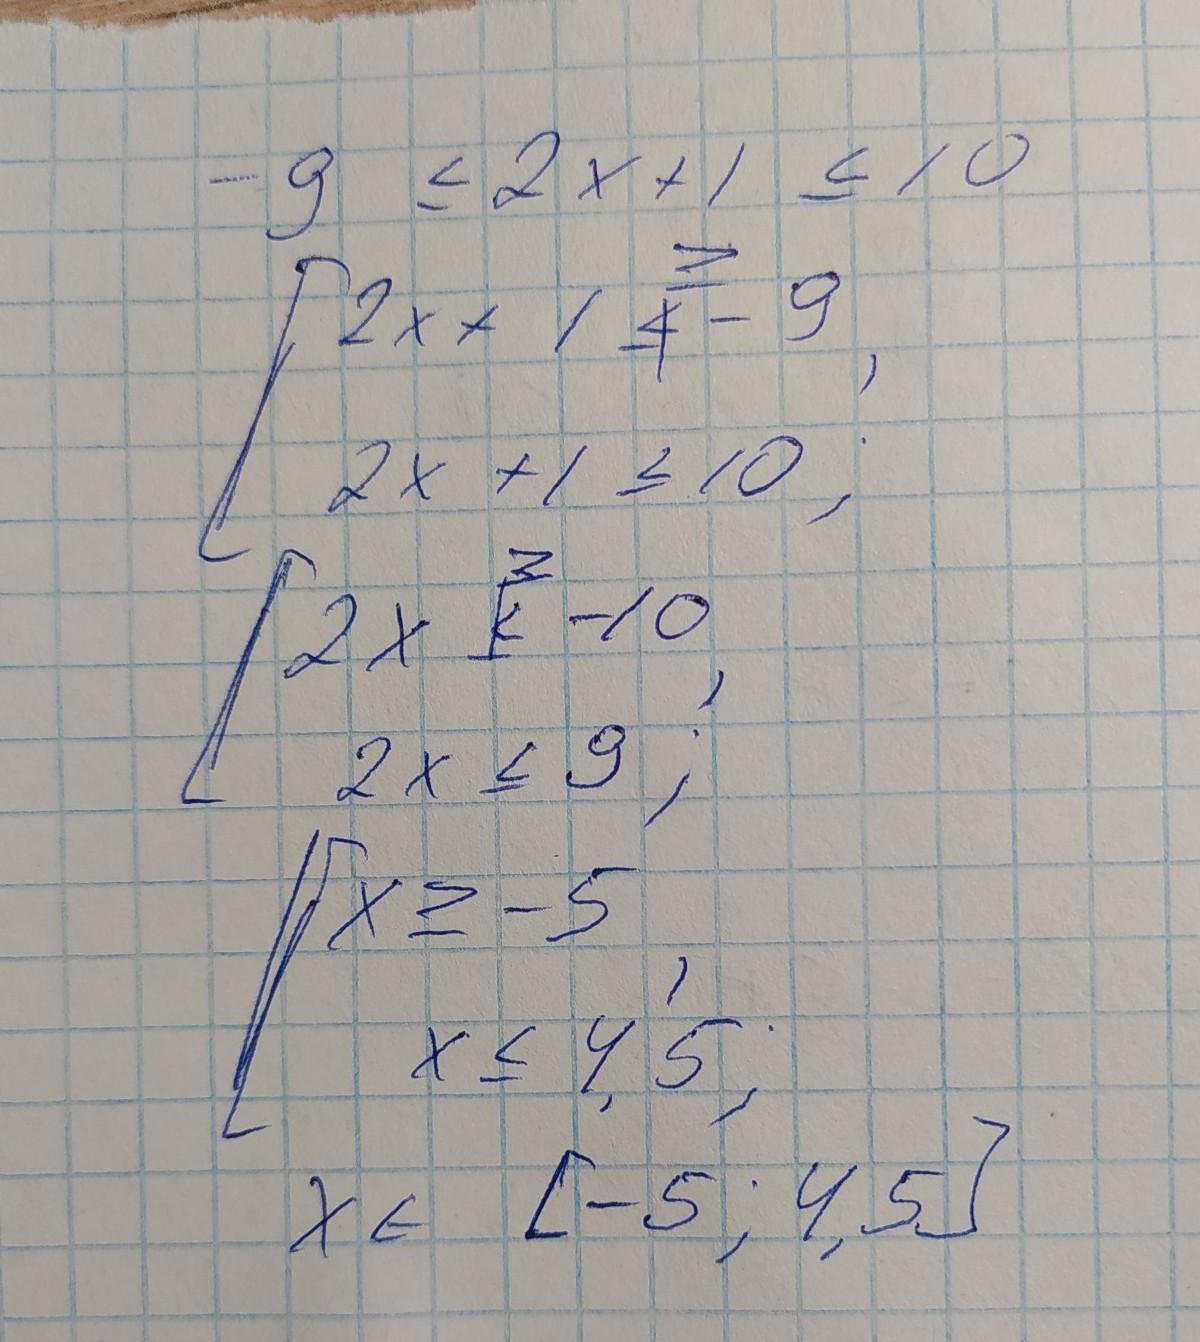 -9 ≤ 2x+1 ≤ 10
[2x+1 ≥ -9,
2x+1 ≤ 10;
[2x ≥ -10,
2x ≤ 9;
[x ≥ -5,
x ≤ 4,5;
x ∈ [-5; 4,5]